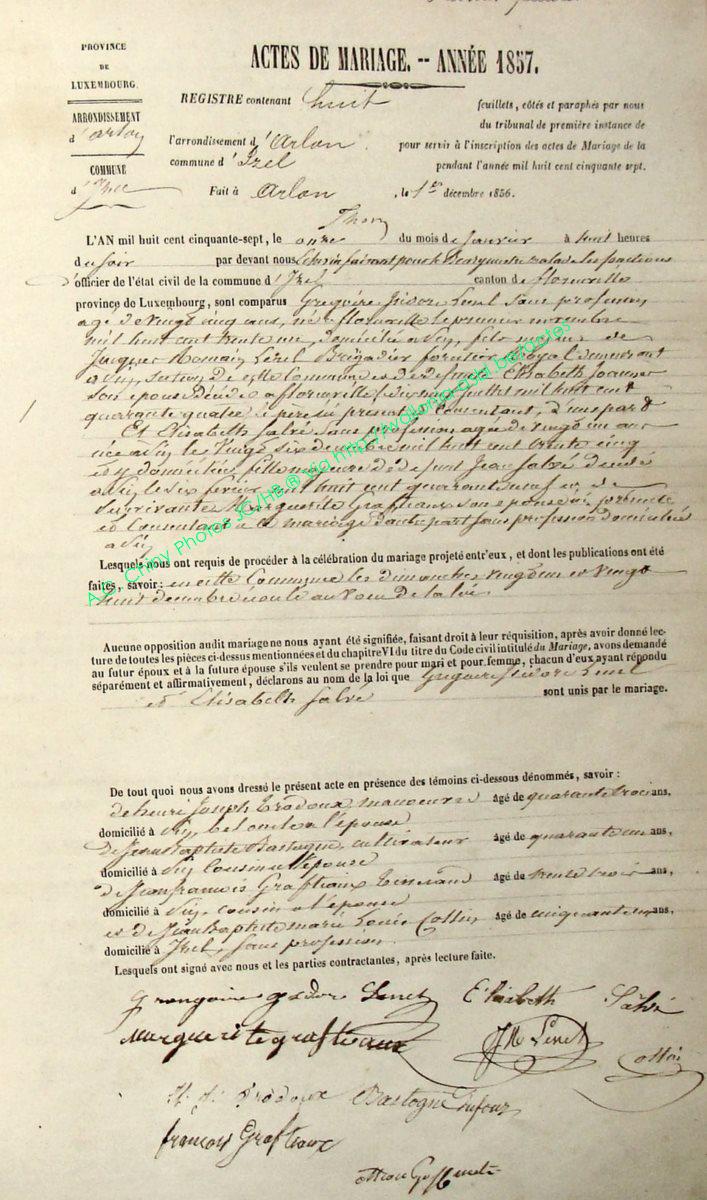 PROVINCE
DE
LUXEMBOURG.
ARRONDISSEMENT
d'arlon
COMMUNE
d'Izel
ACTES DE MARIAGE. -- ANNÉE 1857.
REGISTRE contenant huit feuillets, côtés et paraphés par nous
du tribunal de première instance de
l'arrondissement d'Arlon pour servir à l'inscription des actes de Mariage de la
commune d'Izel pendant l'année mil huit cent cinquante sept.
Fait à Arlon, le 1er décembre 1856.
L'AN mil huit cent cinquante-sept, le onze du mois de Janvier à huit heures
du soir par devant nous
d'officier de l'état civil de la commune d'Izel canton de florenville
province de Luxembourg, sont comparus Grégoire Isidore Lenel Sans profession
agé de vingt cinq ans, né à florenville le premier novembre
mil huit cent trente un, domicilié à Viy, fils majeur de
Jacques Romain Lenel Brigadier forestier Royal demeurant
à Viy, section de cette Commune et de defunte Elisabeth
son epouse décédée a florenville le juillet mil huit cent
quarante quatre le pere ici present et Consentant, d'une part &
Et Elisabeth Salvé Sans profession agée de vingt un ans
née a Viy le Vingt Six decembre mil huit cent trente cinq
et y domiciliée, fille mineure de defunt Jean Salvé decedé
a Viy le six fevrier mil huit cent quarante neuf et de
Survivante Marguerite Graftiaux son epouse ici presente
et Consentant à ce mariage d'autre part sans profession domiciliée
a Viy
Lesquels nous ont requis de procéder à la célébration du mariage projeté entr'eux, et dont les publications ont été
faites, savoir : en cette Commune les dimanches vingt un et vingt
huit decembre au voeu de la loi
Aucune opposition audit mariage ne nous ayant été signifiée, faisant droit à leur réquisition, après avoir donné lec-
ture de toutes les pièces ci-dessus mentionnées et du chapitre VI du titre du Code civil intitulé du Mariage, avons demandé
au futur époux et à la future épouse s'ils veulent se prendre pour mari et pour femme, chacun d'eux ayant répondu
séparément et affirmativement, déclarons au nom de la loi que Grégoire Isidore Lenel
et Elisabeth Salvé sont unis par le mariage.
De tout quoi nous avons dressé le présent acte en présence des témoins ci-dessous dénommés, savoir :
de henri Joseph Tradoux manoeuvre âgé de quarante trois ans,
domicilié à Viy, bel oncle a l'épouse
de Jean Baptiste Bastogne, cultivateur âgé de quarante un ans,
domicilié à Viy Cousin a l'épouse
de Jean francois Graftiaux Tisserand âgé de trente trois ans,
domicilié à Viy, cousin a l'épouse
et de Jean Baptiste marie Louis Collin, âgé de cinquante un ans,
domicilié à Izel, Sans profession.
Lesquels ont signé avec nous et les parties contractantes, après lecture faite.
Elisabeth Salvé
Marguerite grafteaux
JR Lenel
Collin
Bastogne
francois Graftiaux
A.D. Chiny Photos JC/HB ® via http://wallonia-asbl.be/actes